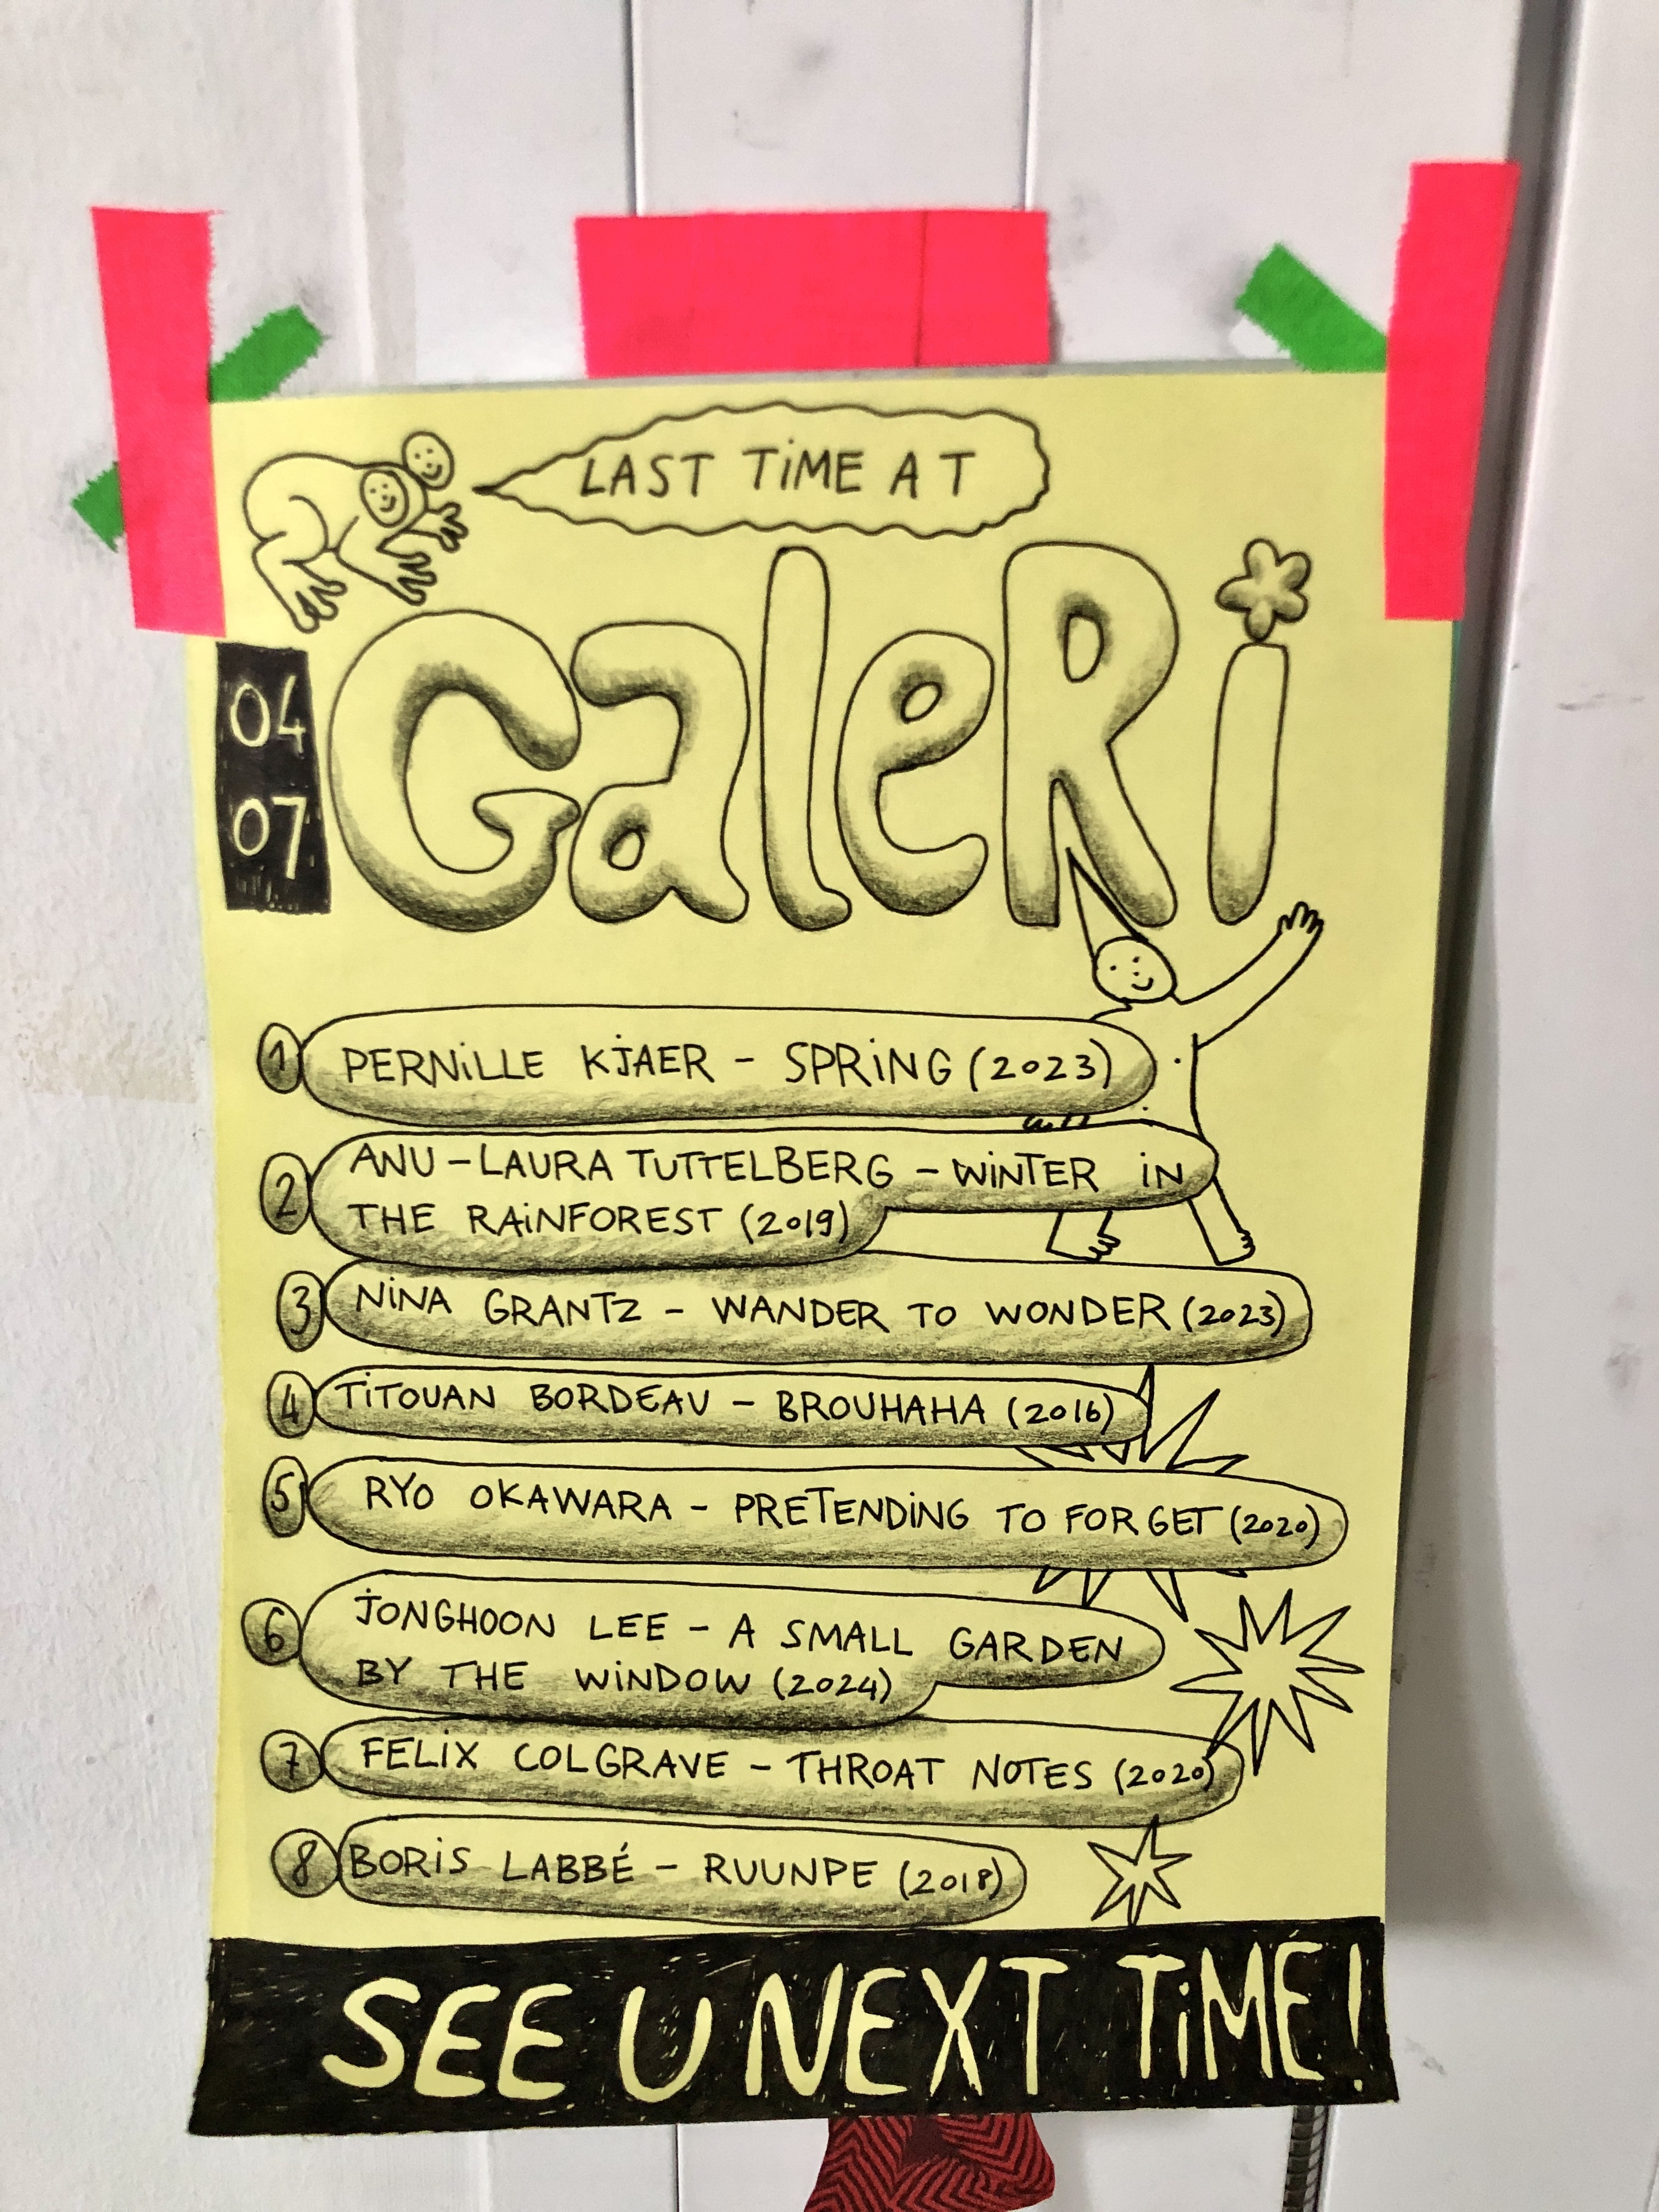 LAST TiME AT
GaleRi
04
07
1 PERNiLLE KJAER - SPRiNG (2023)
2 ANU-LAURA TUTTELBERG - WiNTER iN
THE RAiNFOREST (2019)
3 NiNA GRANTZ - WANDER TO WONDER (2023)
4 TiTOUAN BORDEAU - BROUHAHA (2016)
5 RYO OKAWARA - PRETENDiNG TO FORGET (2020)
6 JONGHOON LEE - A SMALL GARDEN
BY THE WiNDOW (2024)
7 FELiX COLGRAVE - THROAT NOTES (2020)
8 BORiS LABBÉ - RUUNPE (2018)
SEE U NEXT TiME!